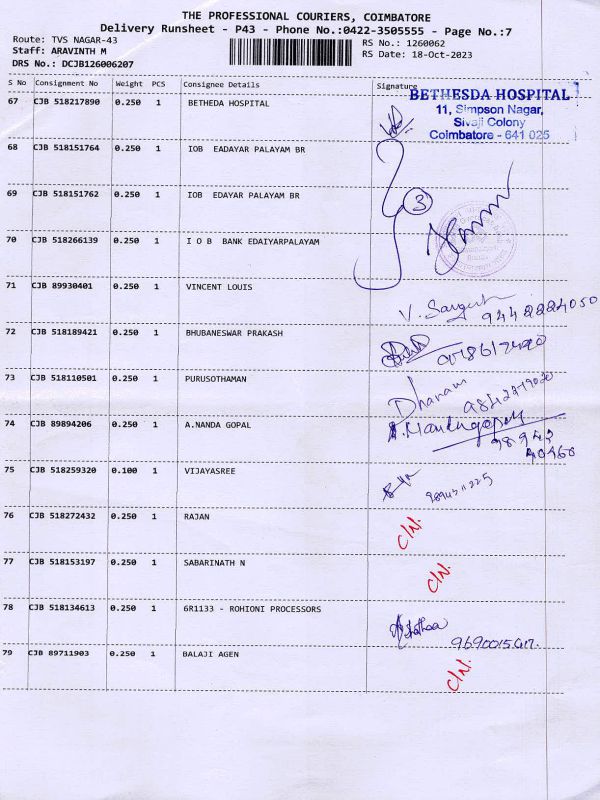 THE PROFESSIONAL COURIERS, COIMBATORE
Delivery Runsheet - P43 - Phone No.:0422-3505555 - Page No.:7
Route: TVS NAGAR-43 RS No.: 1260062
Staff: ARAVINTH M RS Date: 18-Oct-2023
DRS No.: DCJB126006207
S No Consignment No Weight PCS Consignee Details Signature
BETHESDA HOSPITAL
11, Simpson Nagar,
Sivaji Colony
Coimbatore - 641 025
67 CJB 518217890 0.250 1 BETHEDA HOSPITAL
68 CJB 518151764 0.250 1 IOB EADAYAR PALAYAM BR
69 CJB 518151762 0.250 1 IOB EDAYAR PALAYAM BR
3
70 CJB 518266139 0.250 1 I O B BANK EDAIYARPALAYAM
71 CJB 89930401 0.250 1 VINCENT LOUIS
9442224050
72 CJB 518189421 0.250 1 BHUBANESWAR PRAKASH
73 CJB 518110501 0.250 1 PURUSOTHAMAN Dhanam
74 CJB 89894206 0.250 1 A.NANDA GOPAL
75 CJB 518259320 0.100 1 VIJAYASREE
76 CJB 518272432 0.250 1 RAJAN C/N.
77 CJB 518153197 0.250 1 SABARINATH N C/N.
78 CJB 518134613 0.250 1 6R1133 - ROHIONI PROCESSORS
79 CJB 89711903 0.250 1 BALAJI AGEN C/N.